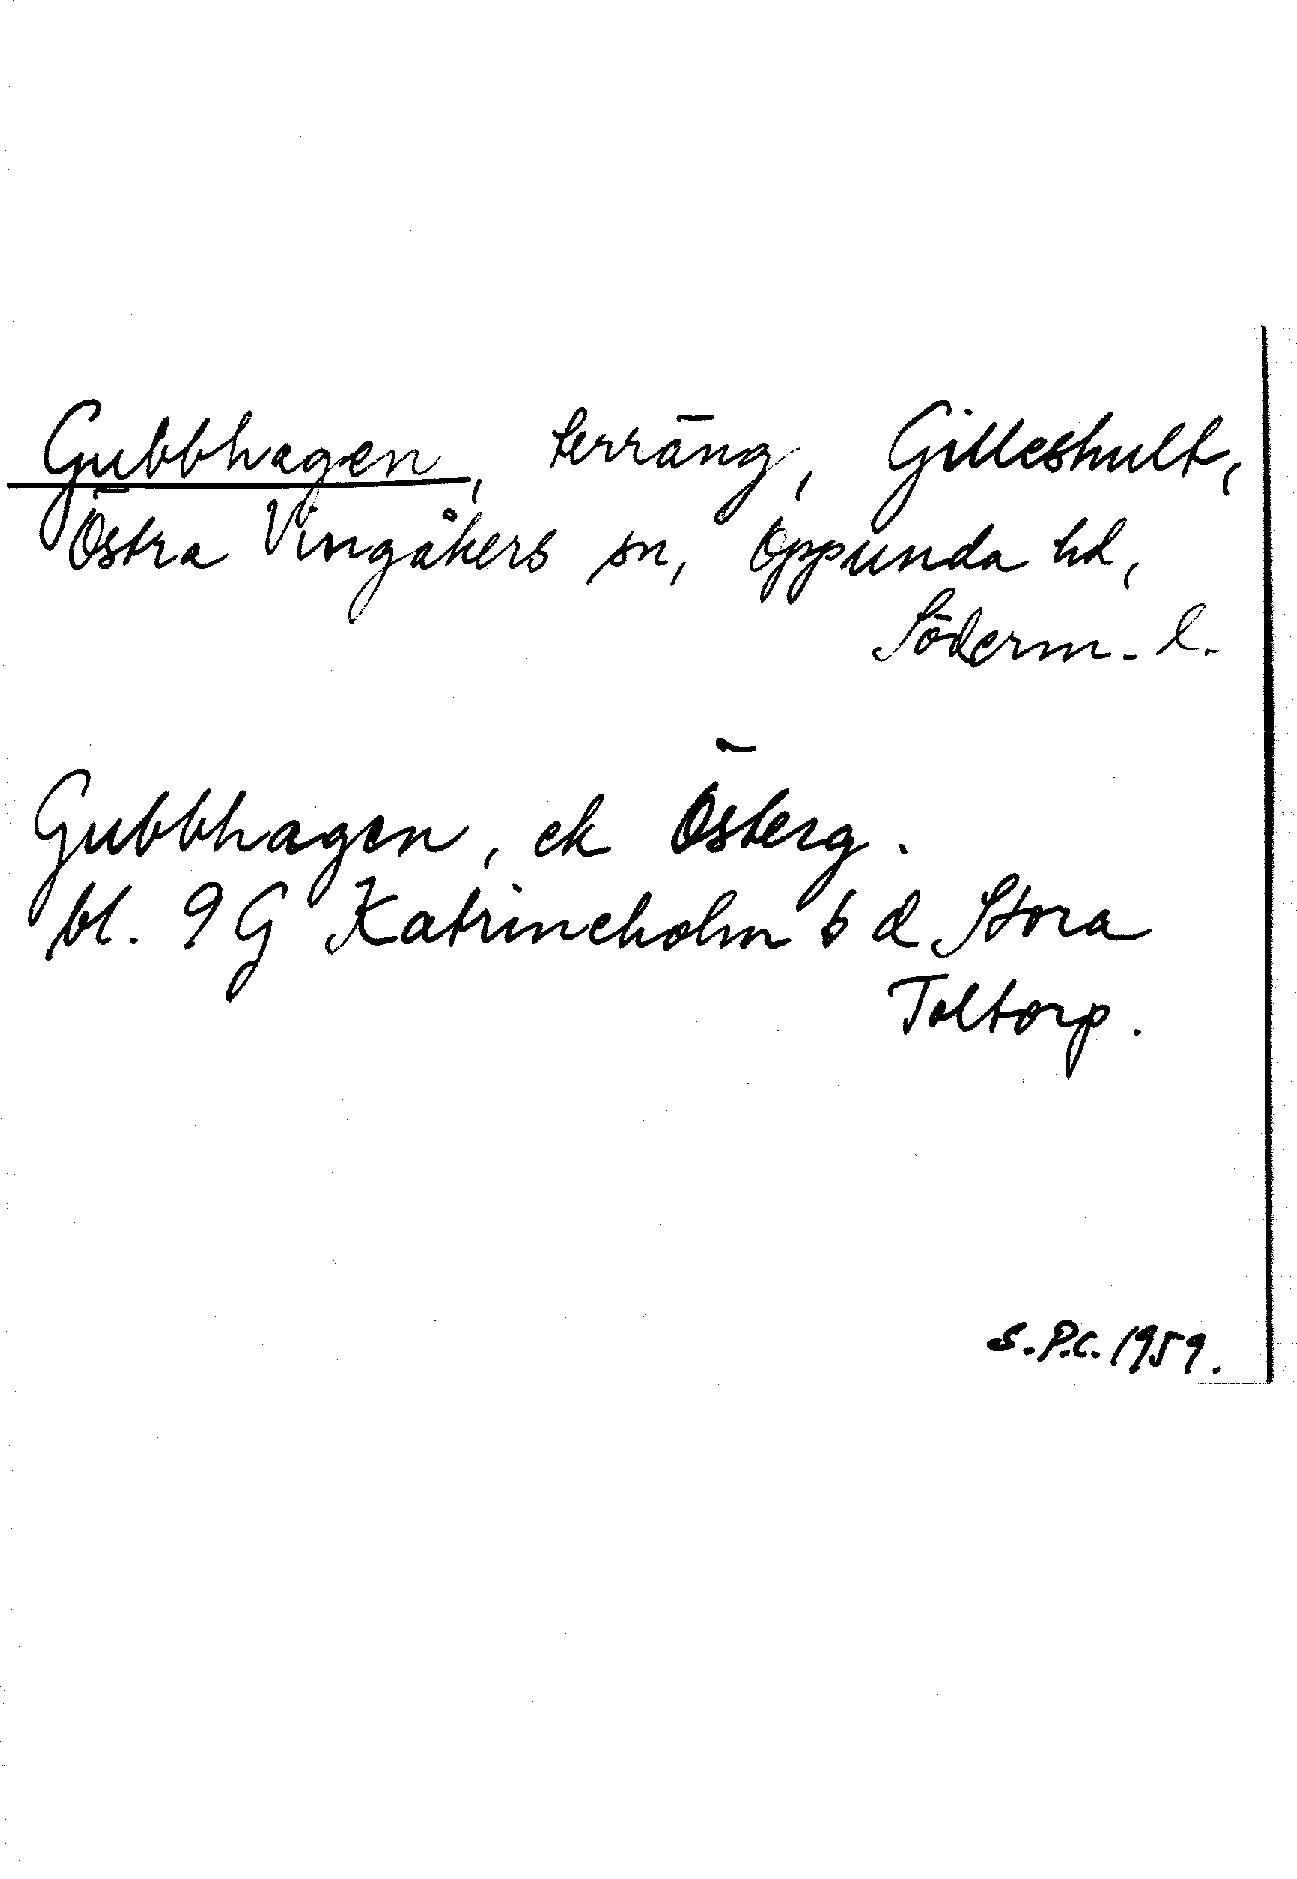 Gubbhagen, terräng, Gilleshult,
Östra Vingåkers sn, Oppunda hd,
Söderm. l.
Gubbhagen, ek Österg.
bl. 9G Katrineholm b d Stora
Toltorp.
S.P.C. 1959.